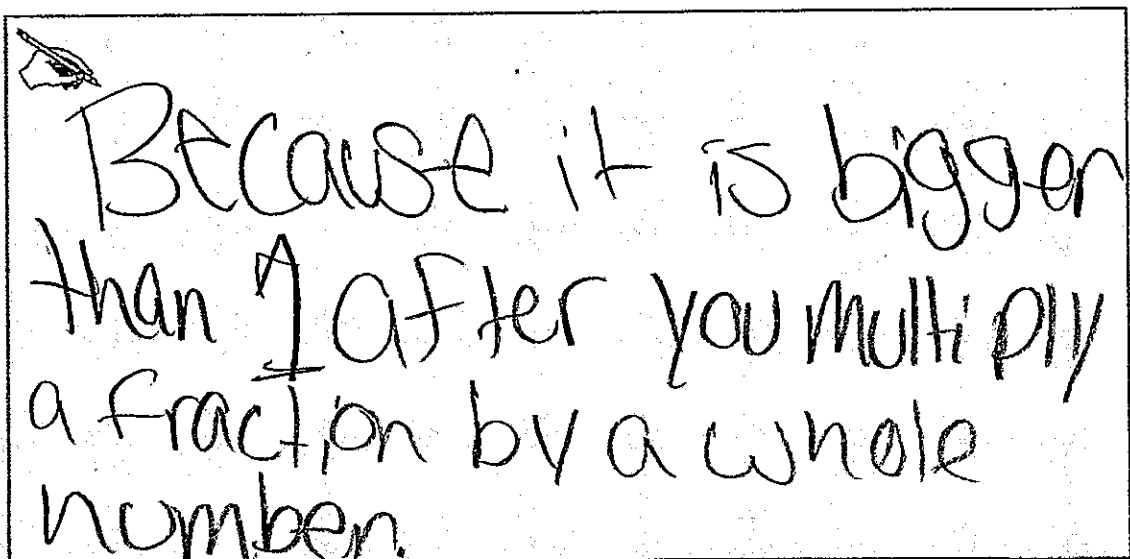 Because it is bigger
than 1 after you multiply
a fraction by a whole
number.